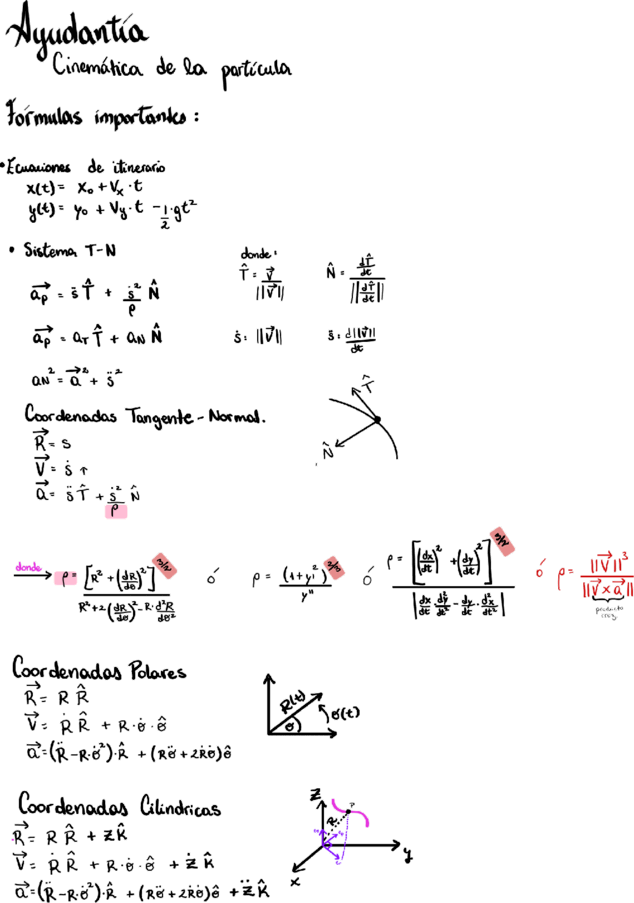 Ayudantía
Cinemática de la partícula
Fórmulas importantes:
• Ecuaciones de itinerario
x(t) = x₀ + Vx · t
y(t) = y₀ + Vy · t - 1/2 · gt²
• Sistema T-N
donde:
T̂ = V⃗ / ||V⃗||
N̂ = (dT̂/dt) / ||dT̂/dt||
a⃗p = s̈ T̂ + ṡ²/ρ N̂
a⃗p = aT T̂ + aN N̂
ṡ: ||V⃗||
s̈: d||V⃗||/dt
aN² = a⃗² + s̈²
T̂
N̂
Coordenadas Tangente-Normal.
R⃗ = s
V⃗ = ṡ ↑
a⃗ = s̈ T̂ + ṡ²/ρ N̂
donde → ρ = [R² + (dR/dθ)²]^3/2 / (R² + 2(dR/dθ)² - R · d²R/dθ²) ó ρ = (1 + y'²)^3/2 / y'' ó ρ = [(dx/dt)² + (dy/dt)²]^3/2 / |dx/dt d²y/dt² - dy/dt · d²x/dt²| ó ρ = ||V⃗||³ / ||V⃗ x a⃗||
producto cruz
Coordenadas Polares
R⃗ = R R̂
V⃗ = Ṙ R̂ + R · θ̇ · θ̂
a⃗ = (R̈ - R · θ̇²) · R̂ + (Rθ̈ + 2Ṙθ̇) θ̂
R(t)
θ
θ(t)
Coordenadas Cilíndricas
R⃗ = R R̂ + z K̂
V⃗ = Ṙ R̂ + R · θ̇ · θ̂ + ż K̂
a⃗ = (R̈ - R · θ̇²) · R̂ + (Rθ̈ + 2Ṙθ̇) θ̂ + z̈ K̂
Z
P
R
y
x